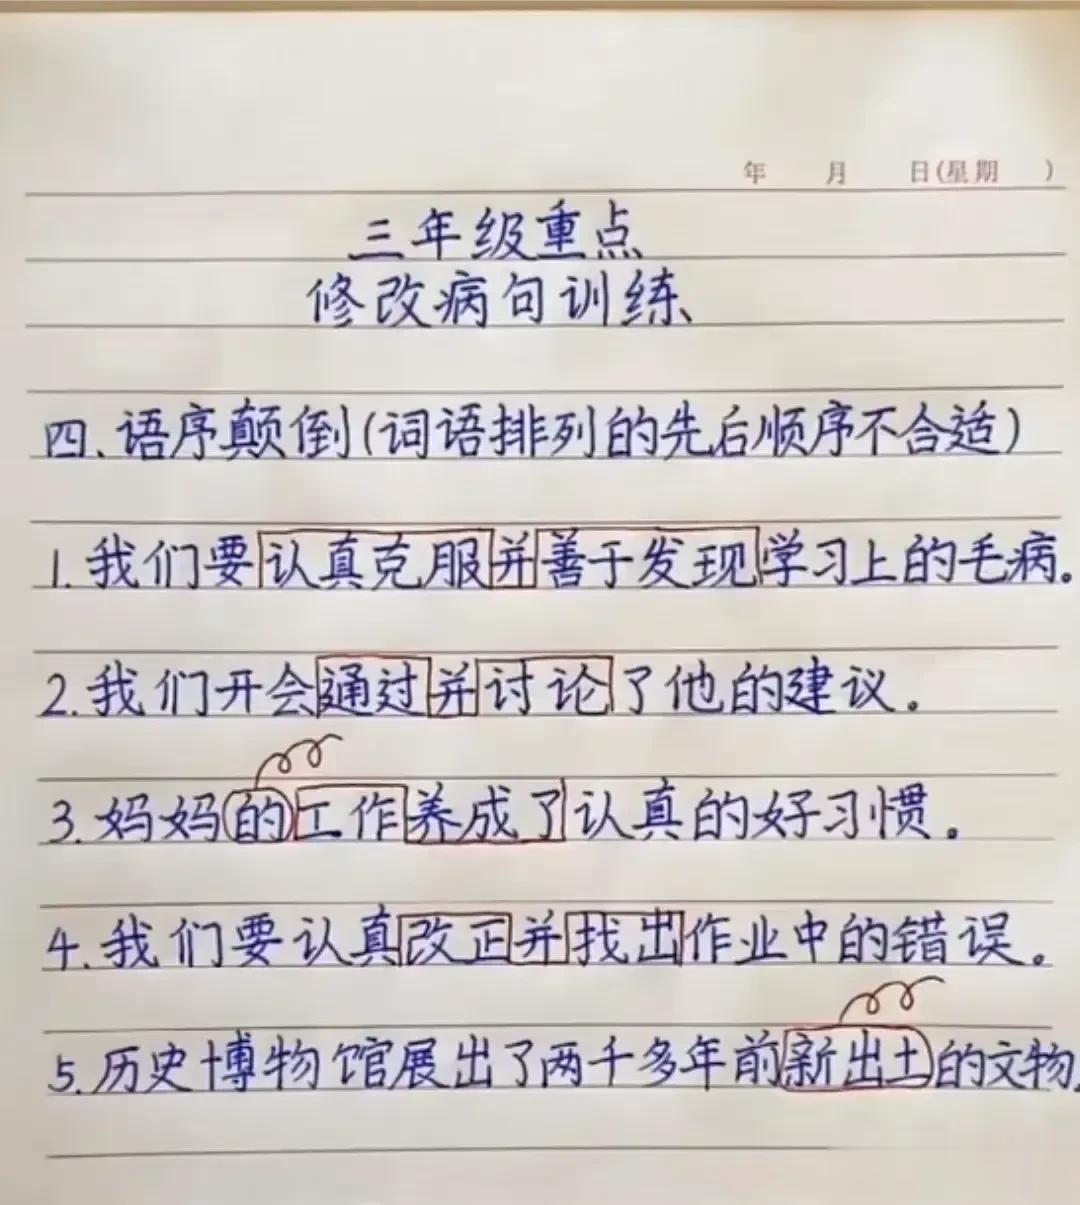 年 月 日(星期 )
三年级重点
修改病句训练
四、语序颠倒(词语排列的先后顺序不合适)
1.我们要认真克服并善于发现学习上的毛病。
2.我们开会通过并讨论了他的建议。
3.妈妈的工作养成了认真的好习惯。
4.我们要认真改正并找出作业中的错误。
5.历史博物馆展出了两千多年前新出土的文物.